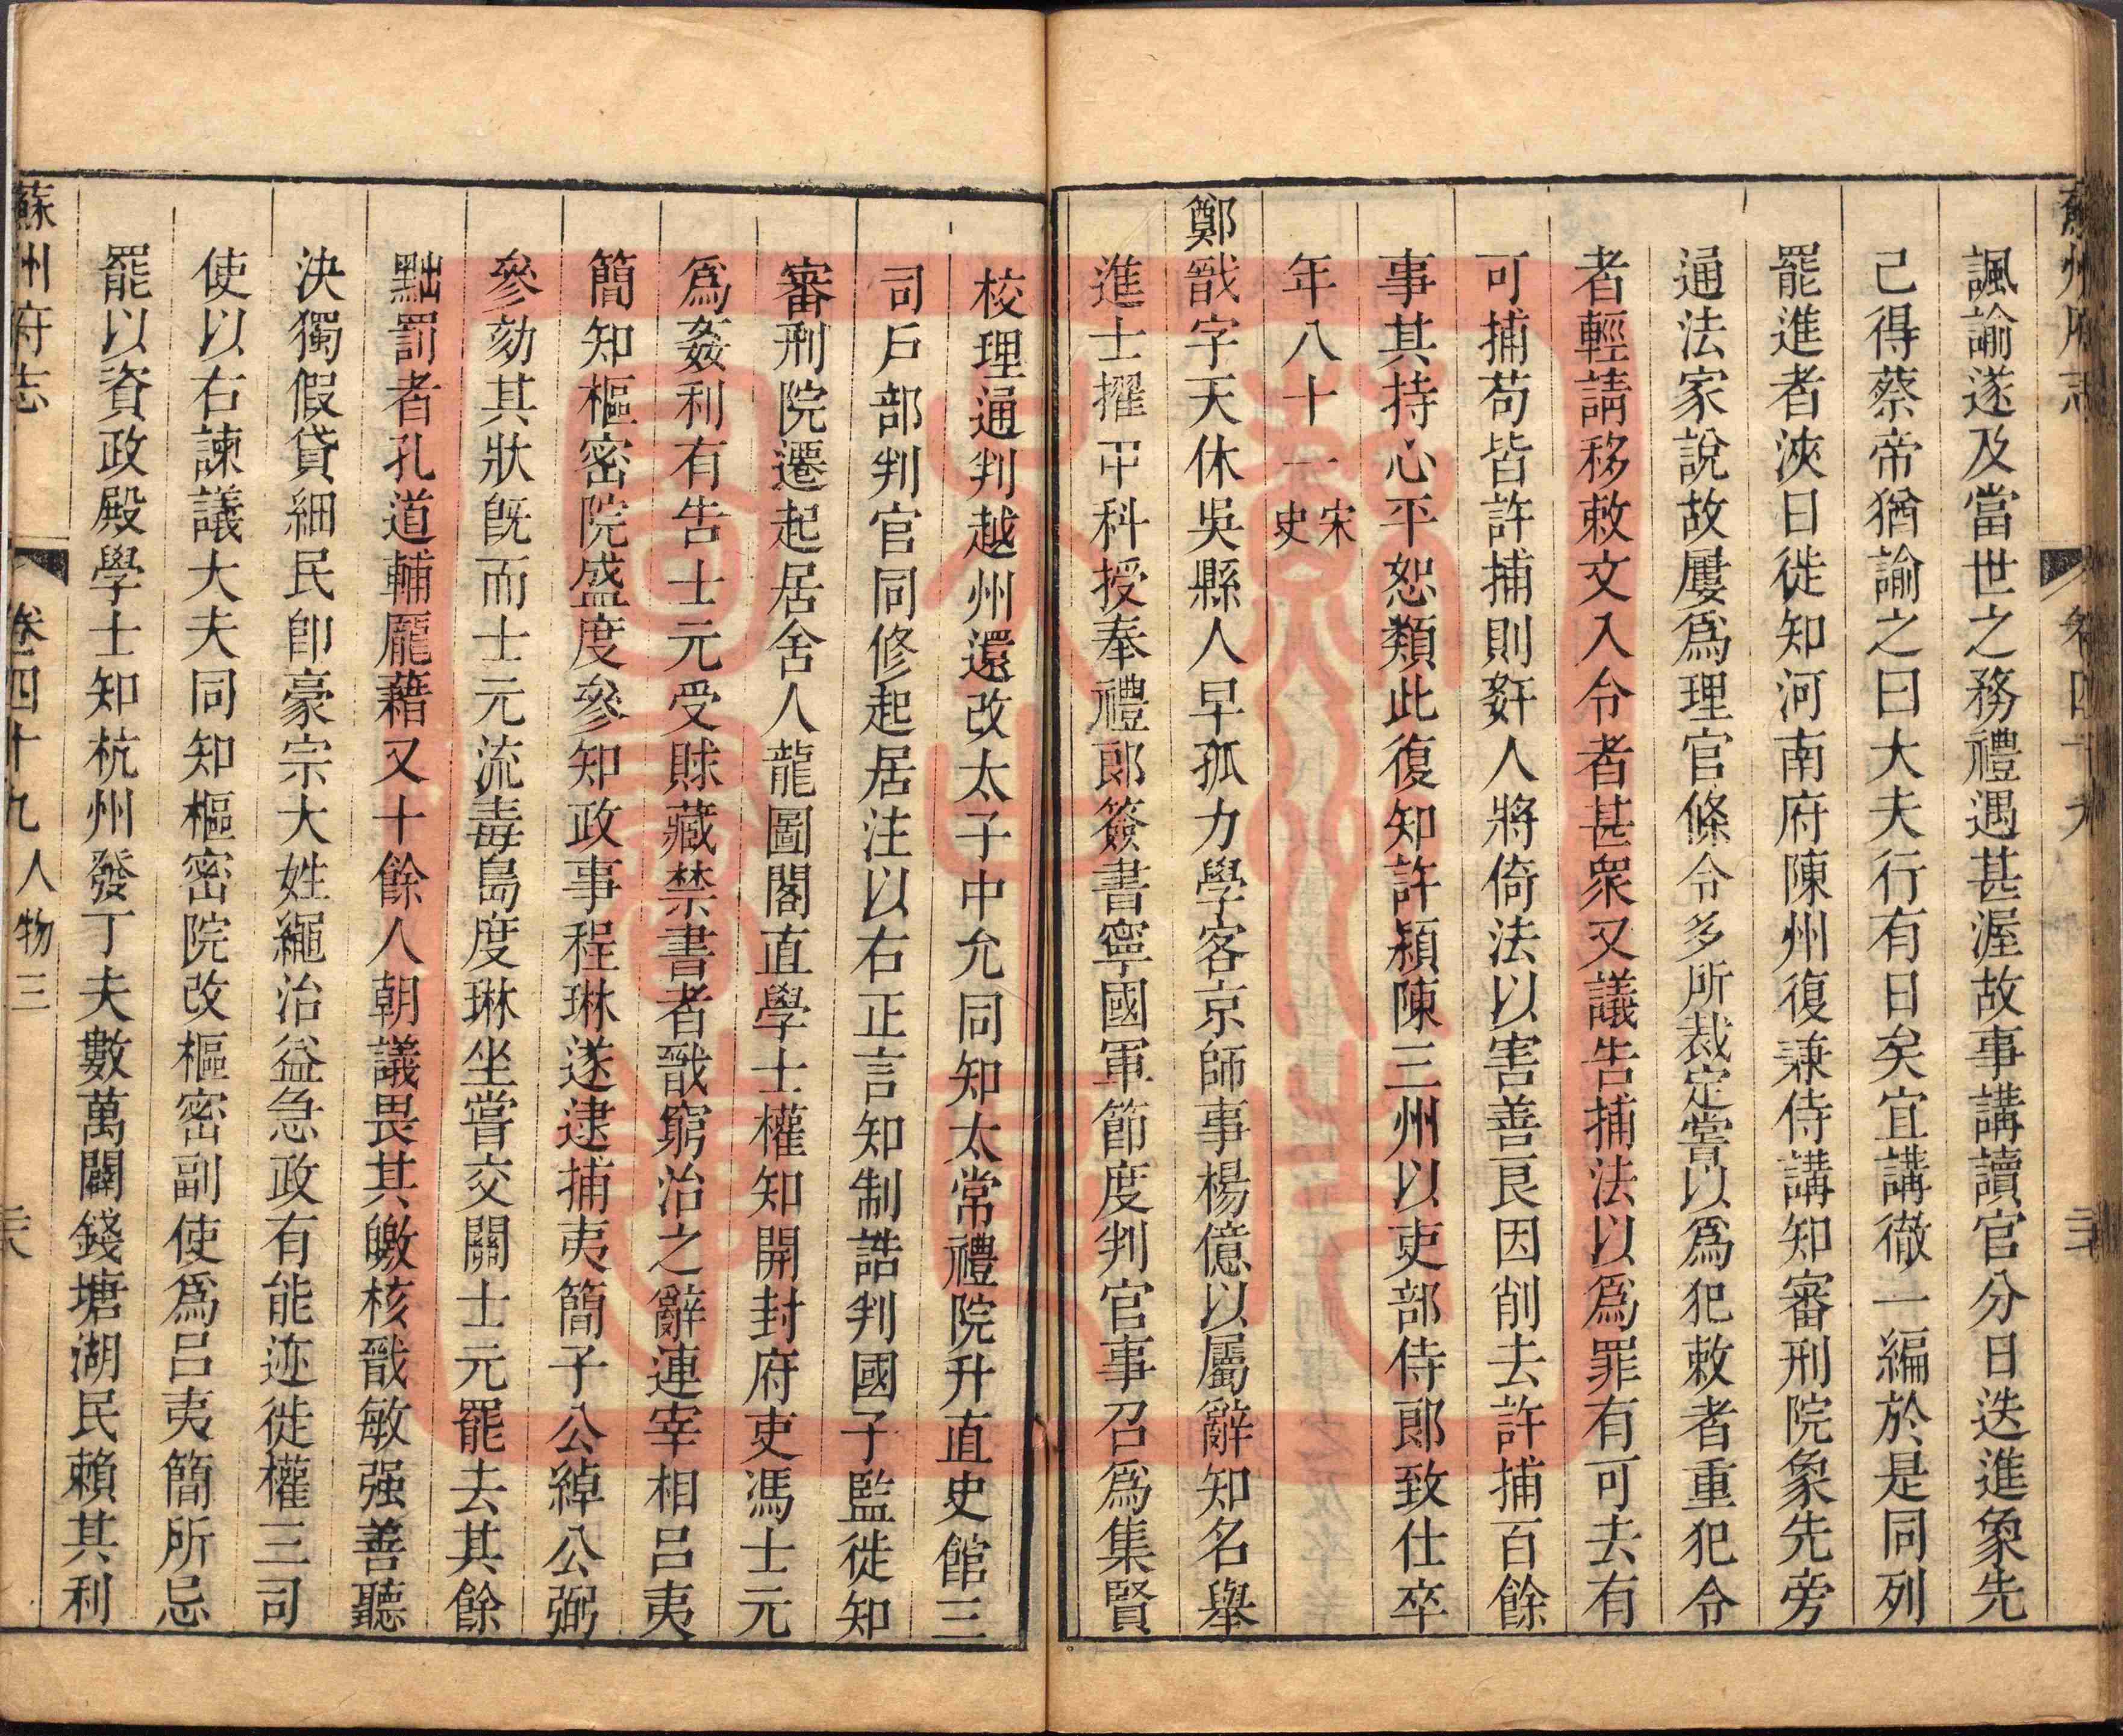 諷諭遂及當世之務禮遇甚渥故事講讀官分日迭進象先
己得蔡帝猶諭之曰大夫行有日矣宜講徹一編於是同列
罷進者浹日徙知河南府陳州復兼侍講知審刑院象先旁
通法家說故屢爲理官條令多所裁定嘗以爲犯敕者重犯令
者輕請移敕文入令者甚衆又議告捕法以爲罪有可去有
可捕苟皆許捕則姧人將倚法以害善良因削去許捕百餘
事其持心平恕類此復知許潁陳三州以吏部侍郎致仕卒
年八十一宋史
鄭戩字天休吳縣人早孤力學客京師事楊億以屬辭知名舉
進士擢甲科授奉禮郎簽書寧國軍節度判官事召爲集賢
校理通判越州還改太子中允同知太常禮院升直史館三
司戶部判官同修起居注以右正言知制誥判國子監徙知
審刑院遷起居舍人龍圖閣直學士權知開封府吏馮士元
爲姦利有告士元受賕藏禁書者戩窮治之辭連宰相呂夷
簡知樞密院盛度參知政事程琳遂逮捕夷簡子公綽公弼
參劾其狀旣而士元流毒島度琳坐嘗交關士元罷去其餘
黜罰者孔道輔龐藉又十餘人朝議畏其皦核戩敏强善聽
決獨假貸細民卽豪宗大姓繩治益急政有能迹徙權三司
使以右諫議大夫同知樞密院改樞密副使爲呂夷簡所忌
罷以資政殿學士知杭州發丁夫數萬闢錢塘湖民賴其利
蘇州府志 卷四十九人物三